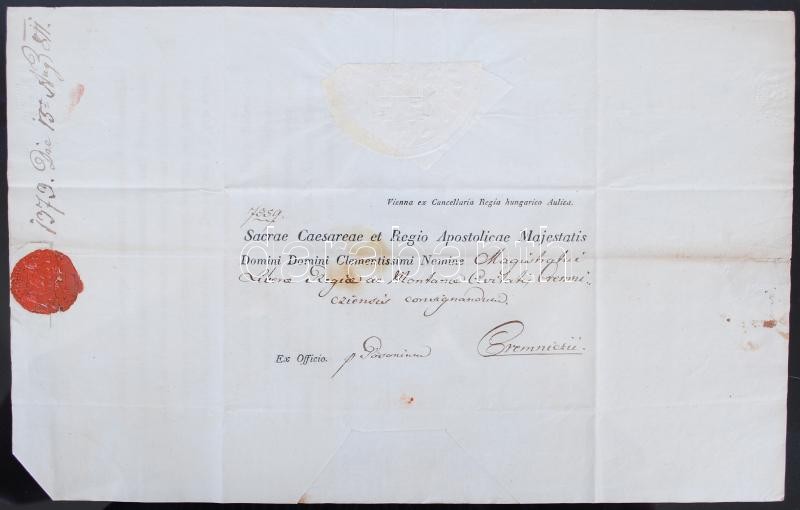 1379. Die 15ª Aug 811.
Vienna ex Cancellaria Regia hungarico Aulica.
7889.
Sacrae Caesareae et Regio Apostolicae Majestatis
Domini Domini Clementissimi Nomine Magistratui
Liberae Regiae ac Montanae Civitatis Cremni-
cziensis consignandum.
Ex Officio. p Posonium Cremniczii.
darabanth